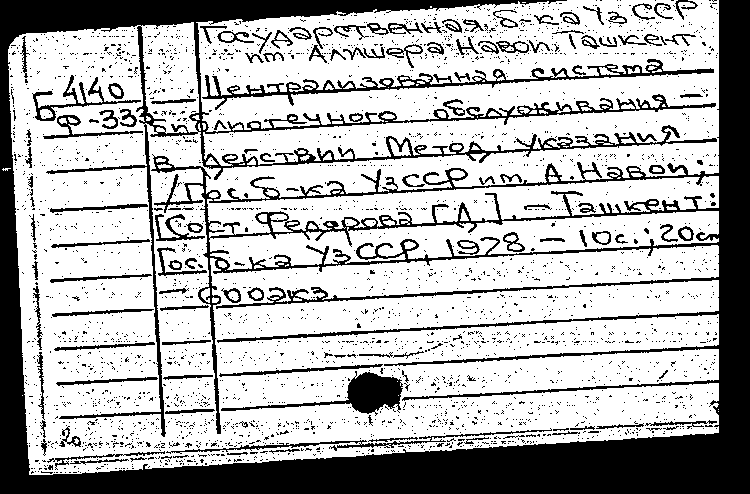 Государственная б-ка УзССР
им. Алишера Навои. Ташкент.
4140 Централизованная система
БФ-333 библиотечного обслуживания —
в действии: Метод. указания
/Гос. б-ка УзССР им. А. Навои;
[Сост. Федярова [Д.]. — Ташкент:
Гос. б-ка УзССР, 1978. — 10с.; 20см
— 600экз.
20